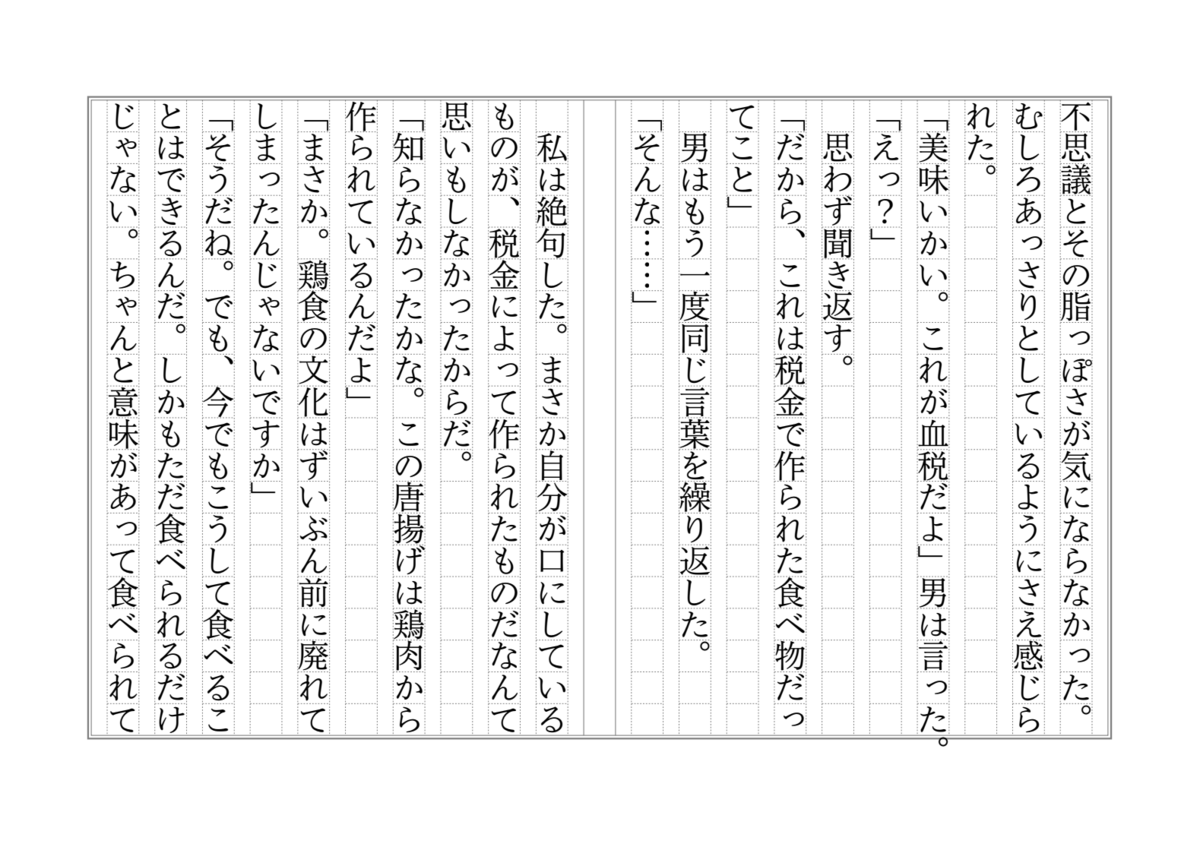 不思議とその脂っぽさが気にならなかった。
むしろあっさりとしているようにさえ感じら
れた。
「美味いかい。これが血税だよ」男は言った。
「えっ？」
　思わず聞き返す。
「だから、これは税金で作られた食べ物だっ
てこと」
　男はもう一度同じ言葉を繰り返した。
「そんな……」
　私は絶句した。まさか自分が口にしている
ものが、税金によって作られたものだなんて
思いもしなかったからだ。
「知らなかったかな。この唐揚げは鶏肉から
作られているんだよ」
「まさか。鶏食の文化はずいぶん前に廃れて
しまったんじゃないですか」
「そうだね。でも、今でもこうして食べるこ
とはできるんだ。しかもただ食べられるだけ
じゃない。ちゃんと意味があって食べられて